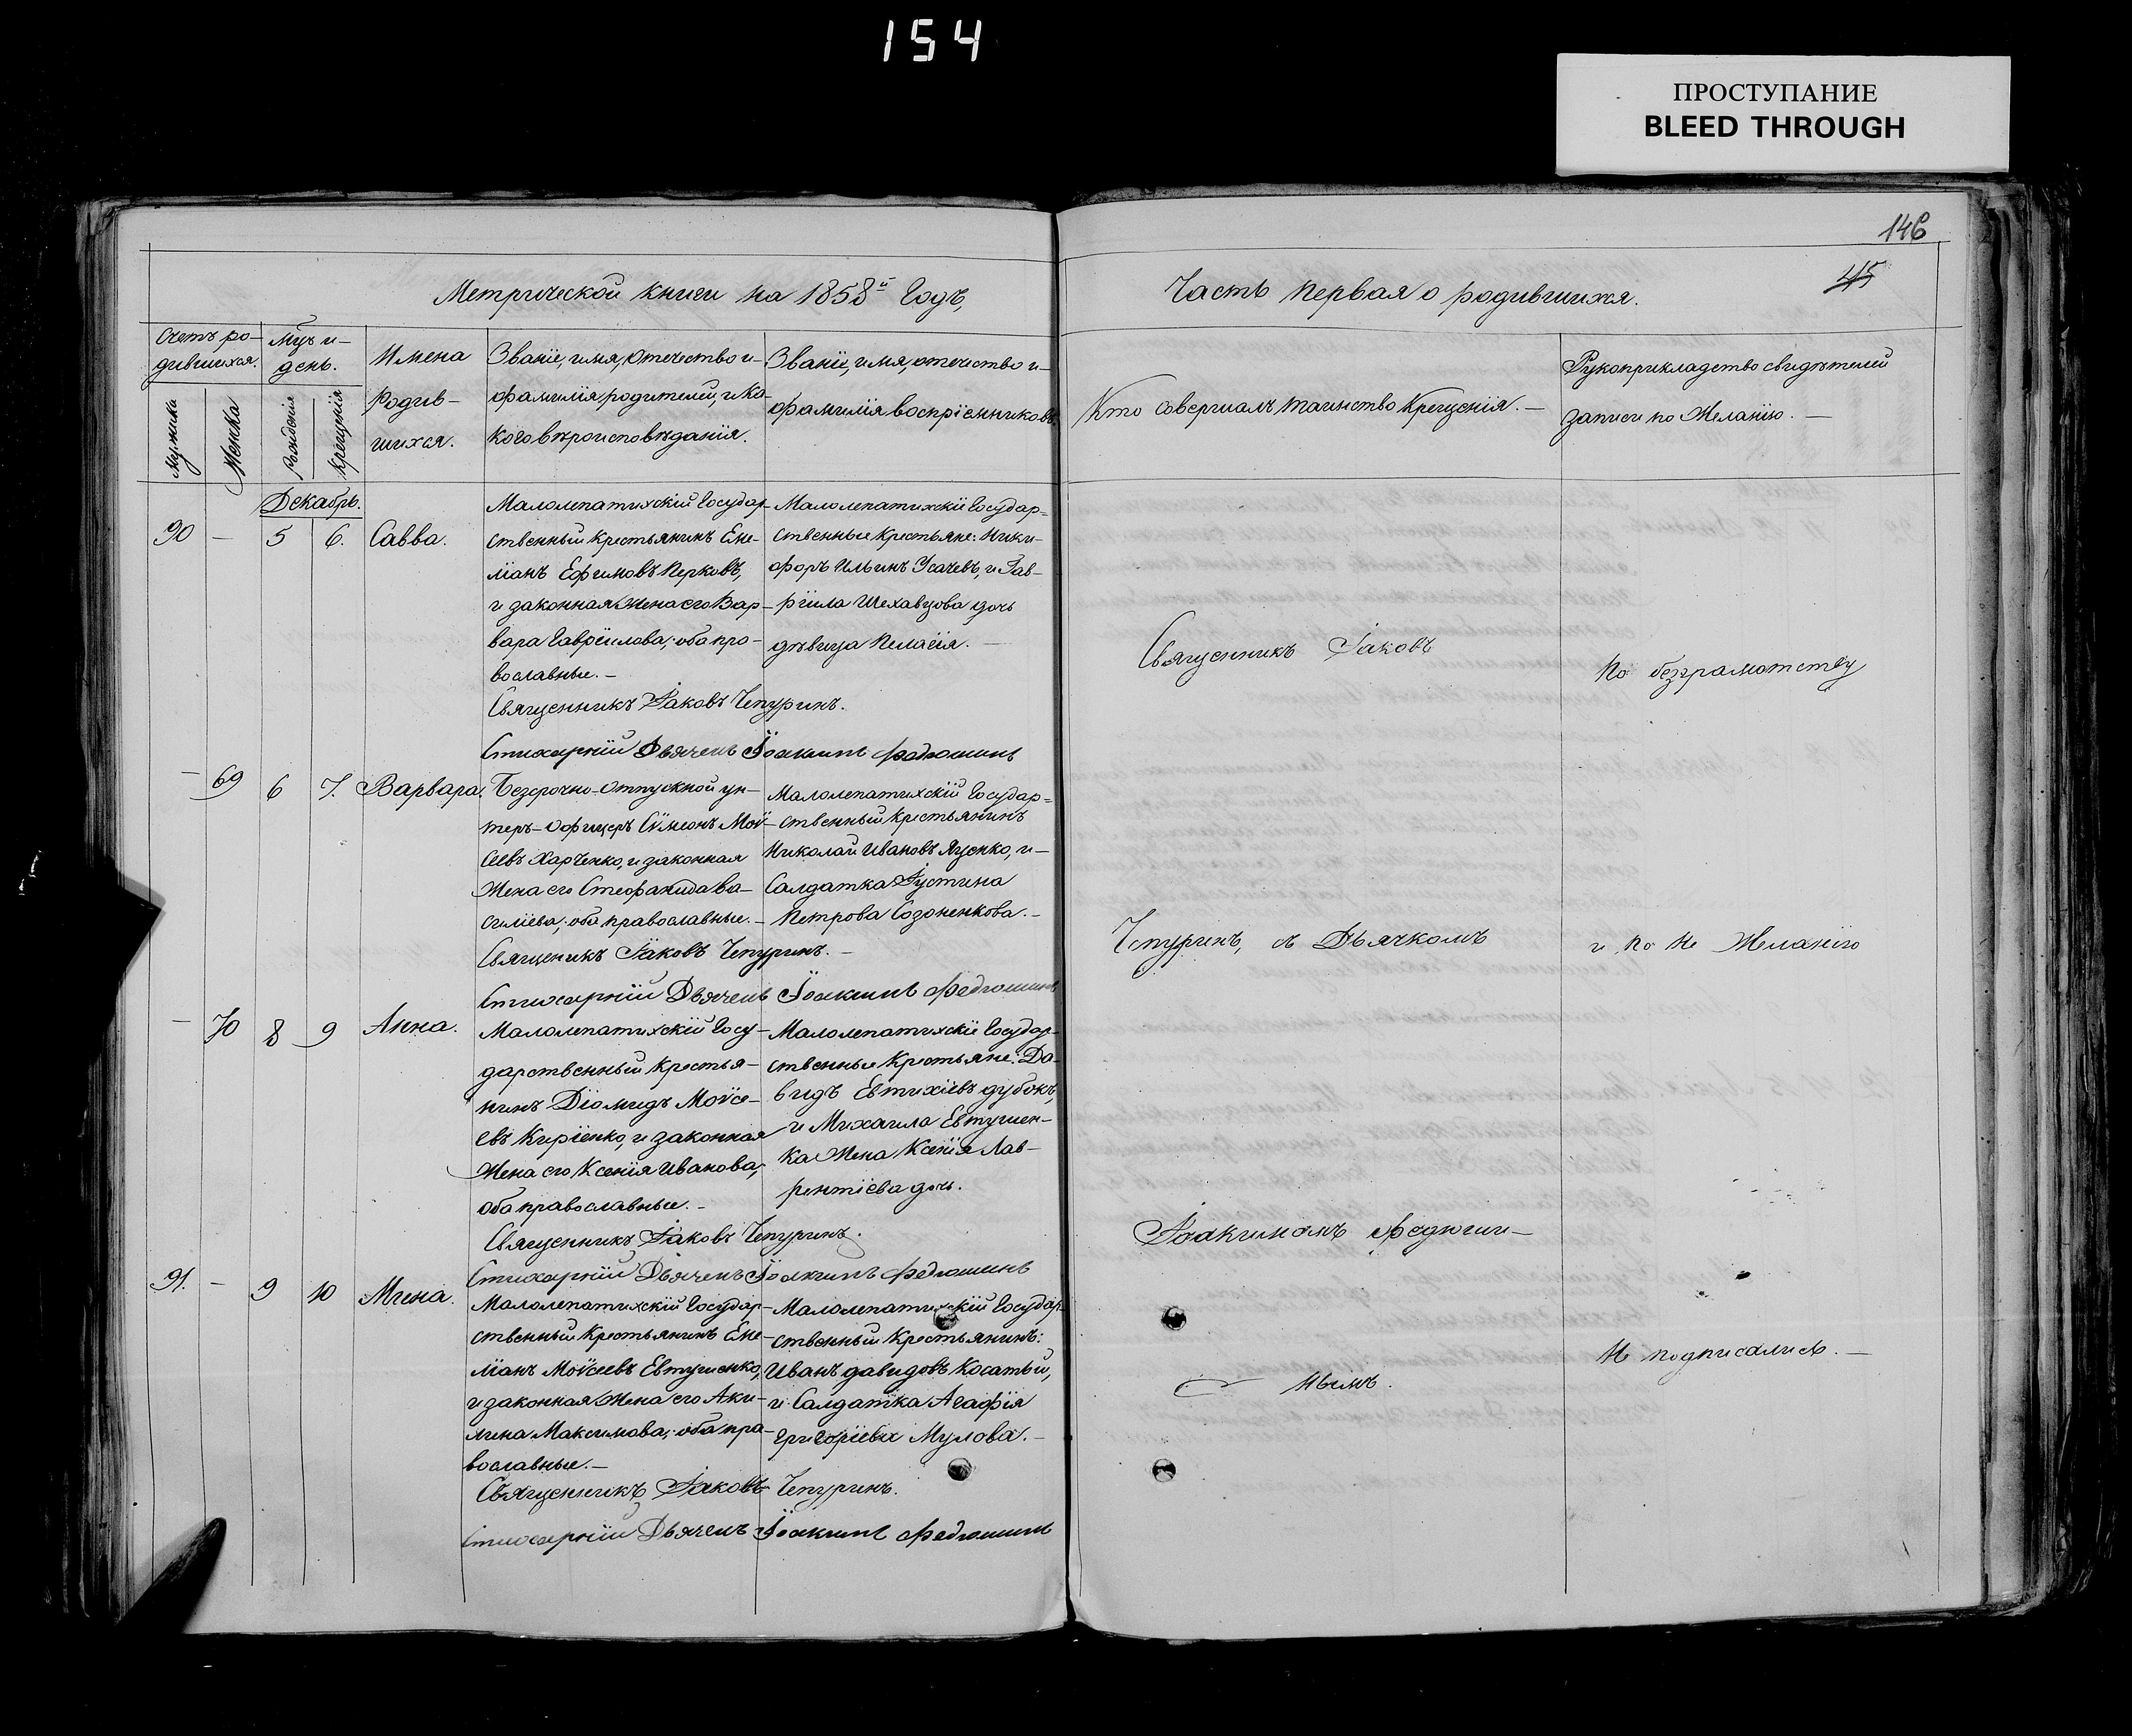 154
ПРОСТУПАНИЕ
BLEED THROUGH
146
45
Метрической книги на 1858й Годъ,
Часть первая о родившихся.
Счетъ ро-
дившихся.
Мужска
Женска
Мцъ и
день.
Рожденія
Крещенія
Имена
Родив-
шихся.
Званіе, имя, отечество и
фамилія родителей, и ка-
кого вѣроисповѣданія.
Званіе, имя, отечество и
фамилія воспріемниковъ.
Кто совершалъ таинство Крещенія.
Рукоприкладство свидѣтелей
записи по Желанію.
Декабрь.
90 — 5 6. Савва.
Малолепатихскій Государ-
ственный крестьянинъ Еме-
ліанъ Ефимовъ Перковъ,
и законная Жена его Вар-
вара Гавріилова; оба про-
вославные.
Малолепатихскіе Государ=
ственные Крестьяне: Ники-
форъ Ильинъ Усачевъ, и Гав-
ріила Шехавцова дочь
дѣвица Пелагія.
Священникъ Іаковъ Чепуринъ.
Стихарный Дьячекъ Іоакимъ Федюшинъ
— 69 6 7. Варвара.
Безсрочно-отпускной ун-
теръ-офицеръ Сѵмеонъ Мой-
сеевъ Харченко, и законная
Жена его Стефанида Ва-
силіева; оба православные.
Малолепатихскій Государ=
ственный крестьянинъ
Николай Ивановъ Яценко, и
Салдатка Іустина
Петрова Созоненкова.
Священикъ Іаковъ Чепуринъ.
Стихарный Дьячекъ Іоакимъ Федюшинъ
— 70 8 9 Анна.
Малолепатихскій Госу-
дарственный крестья-
нинъ Діомидъ Моѵсе-
евъ Киріенко, и законная
Жена его Ксенія Иванова,
оба православные.
Малолепатихскіе Государ-
ственные Крестьяне: Да-
видъ Евтихіевъ дубокъ,
и Михаила Евтушен-
ка Жена Ксенія Лав-
рентіева дочь.
Священникъ Іаковъ Чепуринъ.
Стихарный Дьячекъ Іоакимъ Федюшинъ
91. — 9 10 Мина.
Малолепатихскій Государ-
ственный Крестьянинъ Еме-
ліанъ Моѵсеевъ Евтушенко,
и законная Жена его Аки-
лина Максимова; оба пра-
вославные.
Малолепатихскій Государ-
ственный Крестьянинъ:
Иванъ давидовъ Косатый,
и Салдатка Агафія
Григоріева Мулова.
Священникъ Іаковъ Чепуринъ.
Стихарный Дьячекъ Іоакимъ Федюшинъ
Священникъ Іаковъ
Чепуринъ, съ Дьячкомъ
Іоакимомъ Федюши-
нымъ.
По безграмотству
и по не Желанію
не подписались.